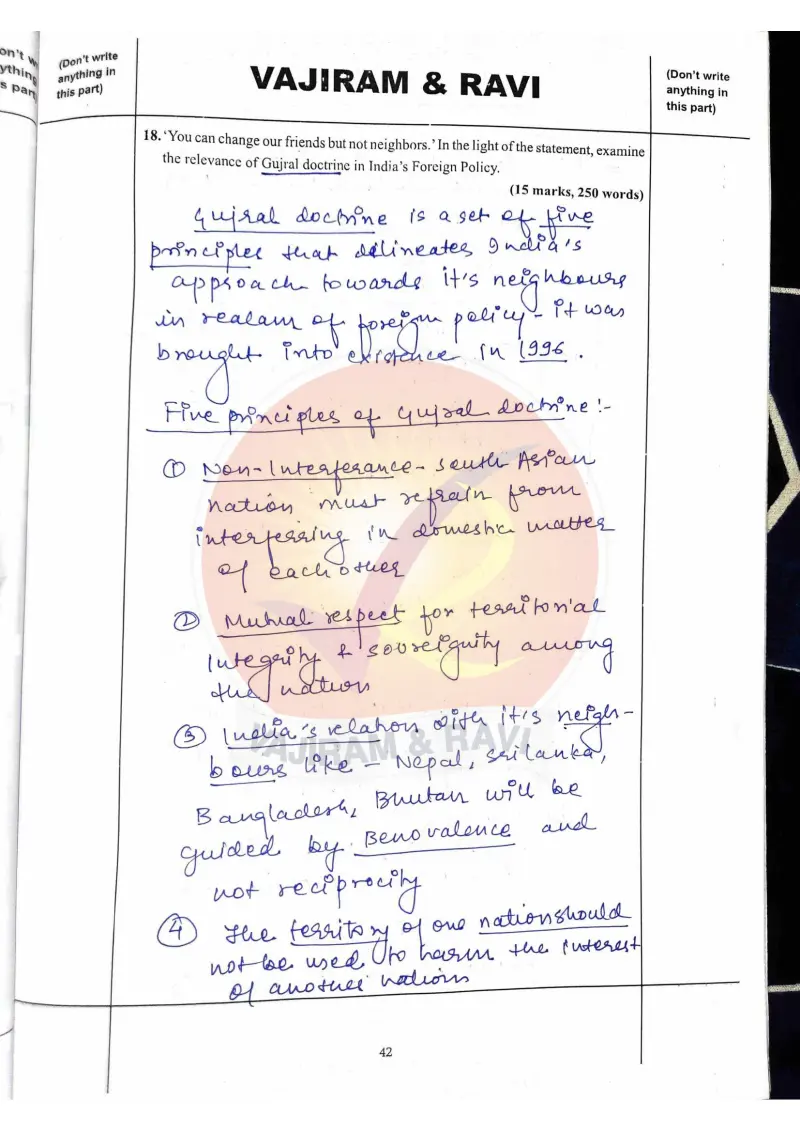 on't w
ything
s part
(Don't write
anything in
this part)
VAJIRAM & RAVI
(Don't write
anything in
this part)
18. 'You can change our friends but not neighbors.' In the light of the statement, examine
the relevance of Gujral doctrine in India's Foreign Policy.
(15 marks, 250 words)
Gujral doctrine is a set of five
principles that delineates India's
approach towards it's neighbours
in realam of foreign policy - it was
brought into existence in 1996.
Five principles of Gujral doctrine :-
① Non-Interferance - South Asian
nation must refrain from
interferring in domestic matter
of each other
② Mutual respect for territorial
Integrity & sovreignity among
the nation
③ India's relation with it's neigh-
bours like - Nepal, Sri lanka,
VAJIRAM & RAVI
Bangladesh, Bhutan will be
guided by Benovalence and
not reciprocity
④ The territory of one nation should
not be used to harm the interest
of another nations
42